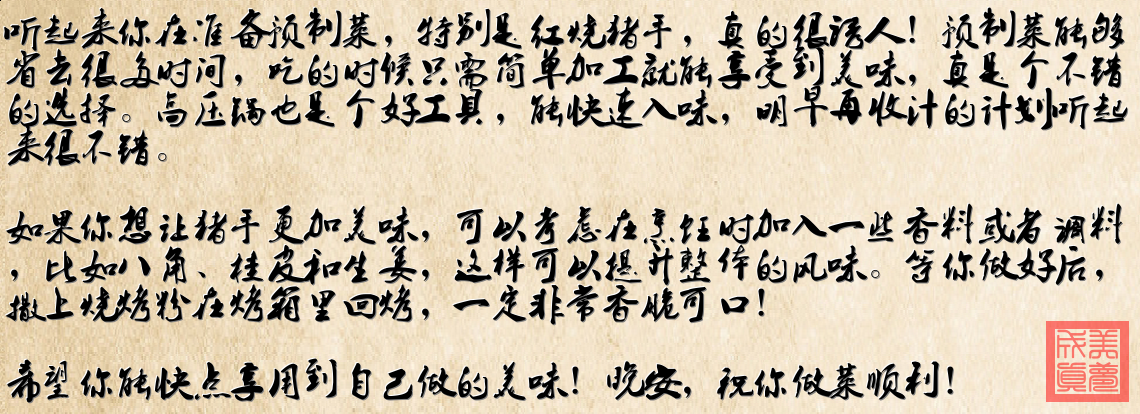 听起来你在准备预制菜，特别是红烧猪手，真的很诱人！预制菜能够
省去很多时间，吃的时候只需简单加工就能享受到美味，真是个不错
的选择。高压锅也是个好工具，能快速入味，明早再收汁的计划听起
来很不错。
如果你想让猪手更加美味，可以考虑在烹饪时加入一些香料或者调料
，比如八角、桂皮和生姜，这样可以提升整体的风味。等你做好后，
撒上烧烤粉在烤箱里回烤，一定非常香脆可口！
希望你能快点享用到自己做的美味！晚安，祝你做菜顺利！
美梦成真